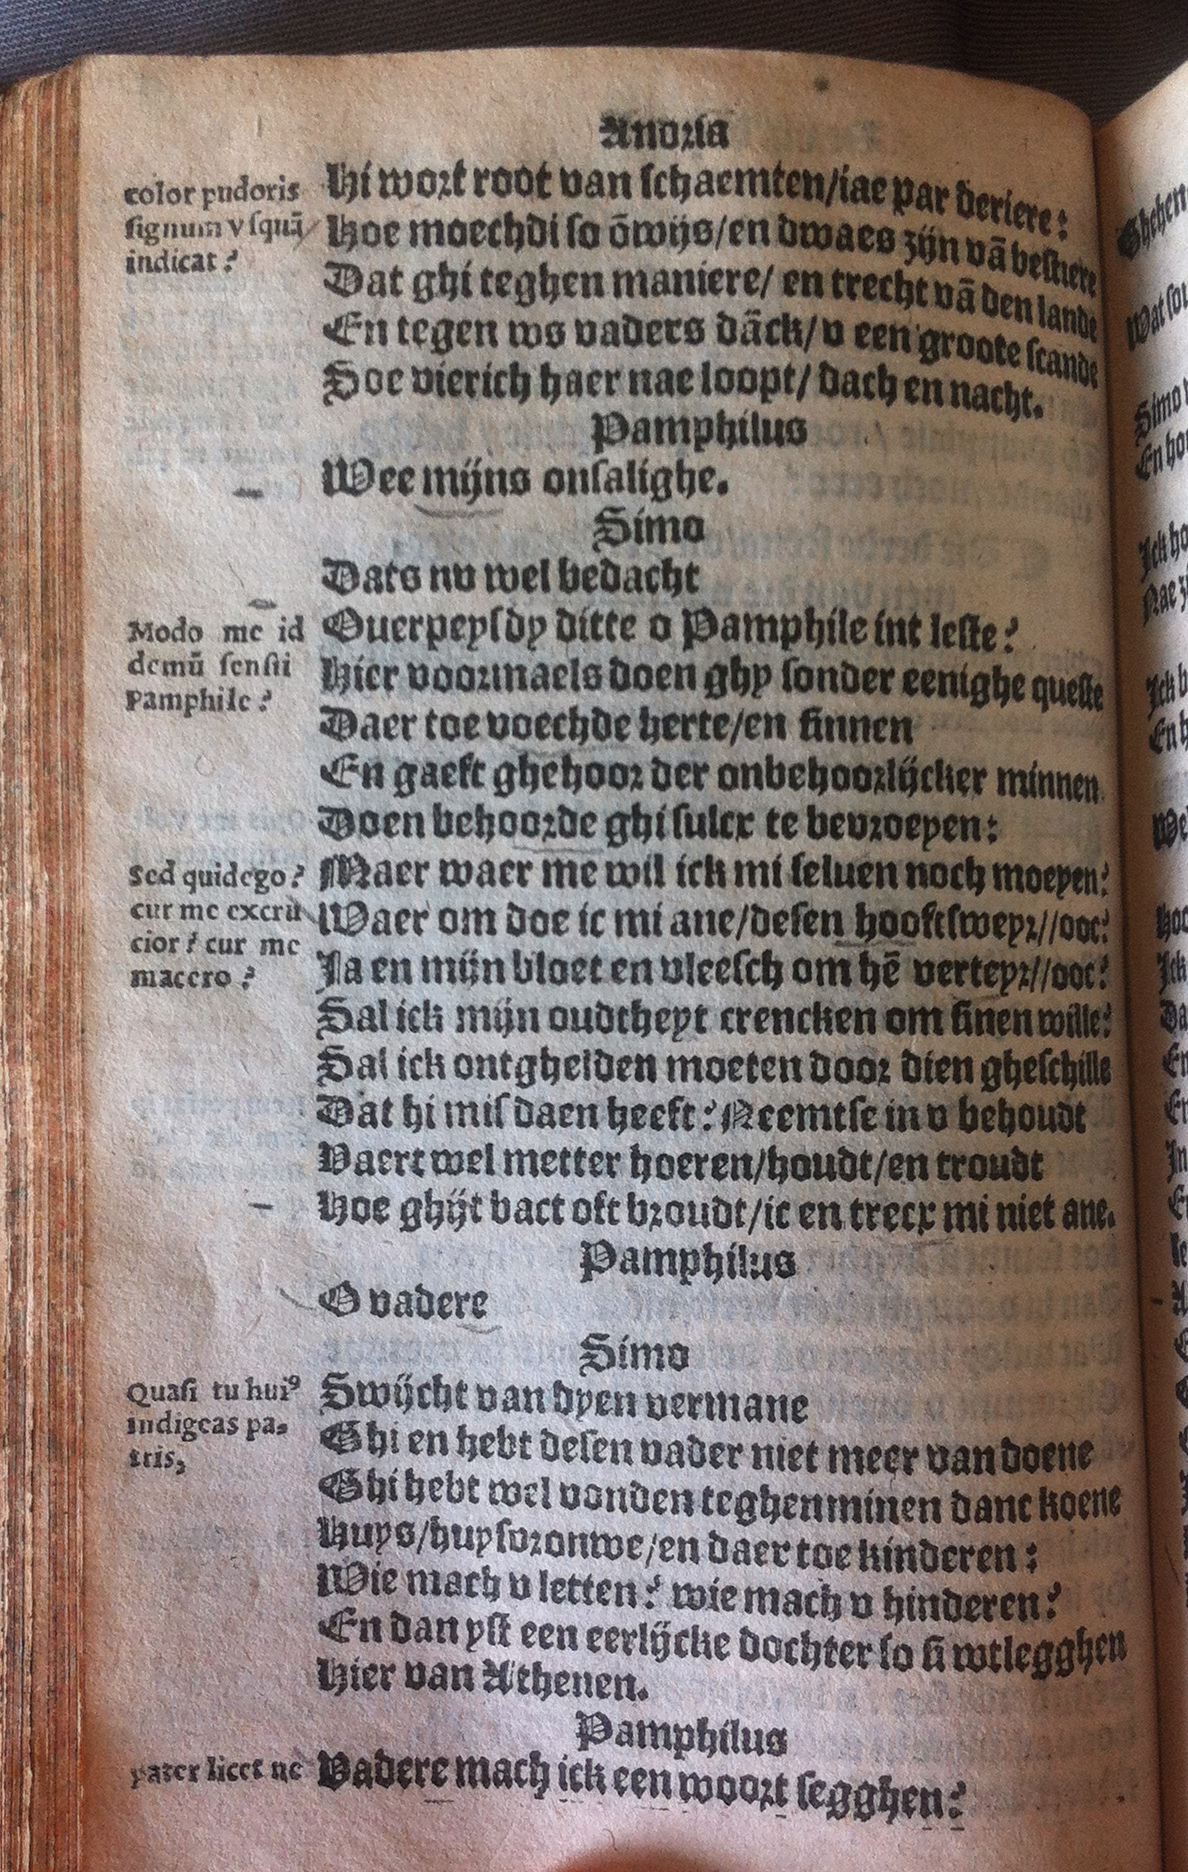 Andria
color pudoris
signum vsquā
indicat?
Hi wort root van schaemten/iae par deriere:
Hoe moechdi so ōwijs/en dwaes zijn vā bestiere
Dat ghi teghen maniere/ en trecht vā den lande
En tegen ws vaders dāck/v een groote scande
Soe vierich haer nae loopt/ dach en nacht.
Pamphilus
Wee mijns onsalighe.
Simo
Dats nv wel bedacht
Modo me id
demū sensti
Pamphile?
Ouerpeysdy ditte o Pamphile int leste?
Hier voormaels doen ghy sonder eenighe queste
Daer toe voechde herte/en sinnen
En gaeft ghehoor der onbehoorlijcker minnen
Doen behoorde ghi sulcx te bevroeyen:
Sed quid ego?
cur me excru
cior? cur me
macero?
Maer waer me wil ick mi seluen noch moeyen?
Waer om doe ic mi ane/desen hooftsweyr//ooc?
Ja en mijn bloet en vleesch om hē verteyr//ooc?
Sal ick mijn oudtheyt crencken om sinen wille?
Sal ick ontghelden moeten door dien gheschille
Dat hi misdaen heeft? Neemtse in v behoudt
Vaert wel metter hoeren/houdt/en troudt
Hoe ghijt bact oft broudt/ic en trecx mi niet ane.
Pamphilus
O vadere
Simo
Quasi tu huiꝰ
indigeas pa-
tris,
Swijcht van dyen vermane
Ghi en hebt desen vader niet meer van doene
Ghi hebt wel vonden teghen minen danc koene
Huys/huysvrouwe/en daer toe kinderen:
Wie mach v letten? wie mach v hinderen?
En dan yst een eerlijcke dochter so si wtlegghen
Hier van Athenen.
Pamphilus
pater licet ne
Vadere mach ick een woort segghen?